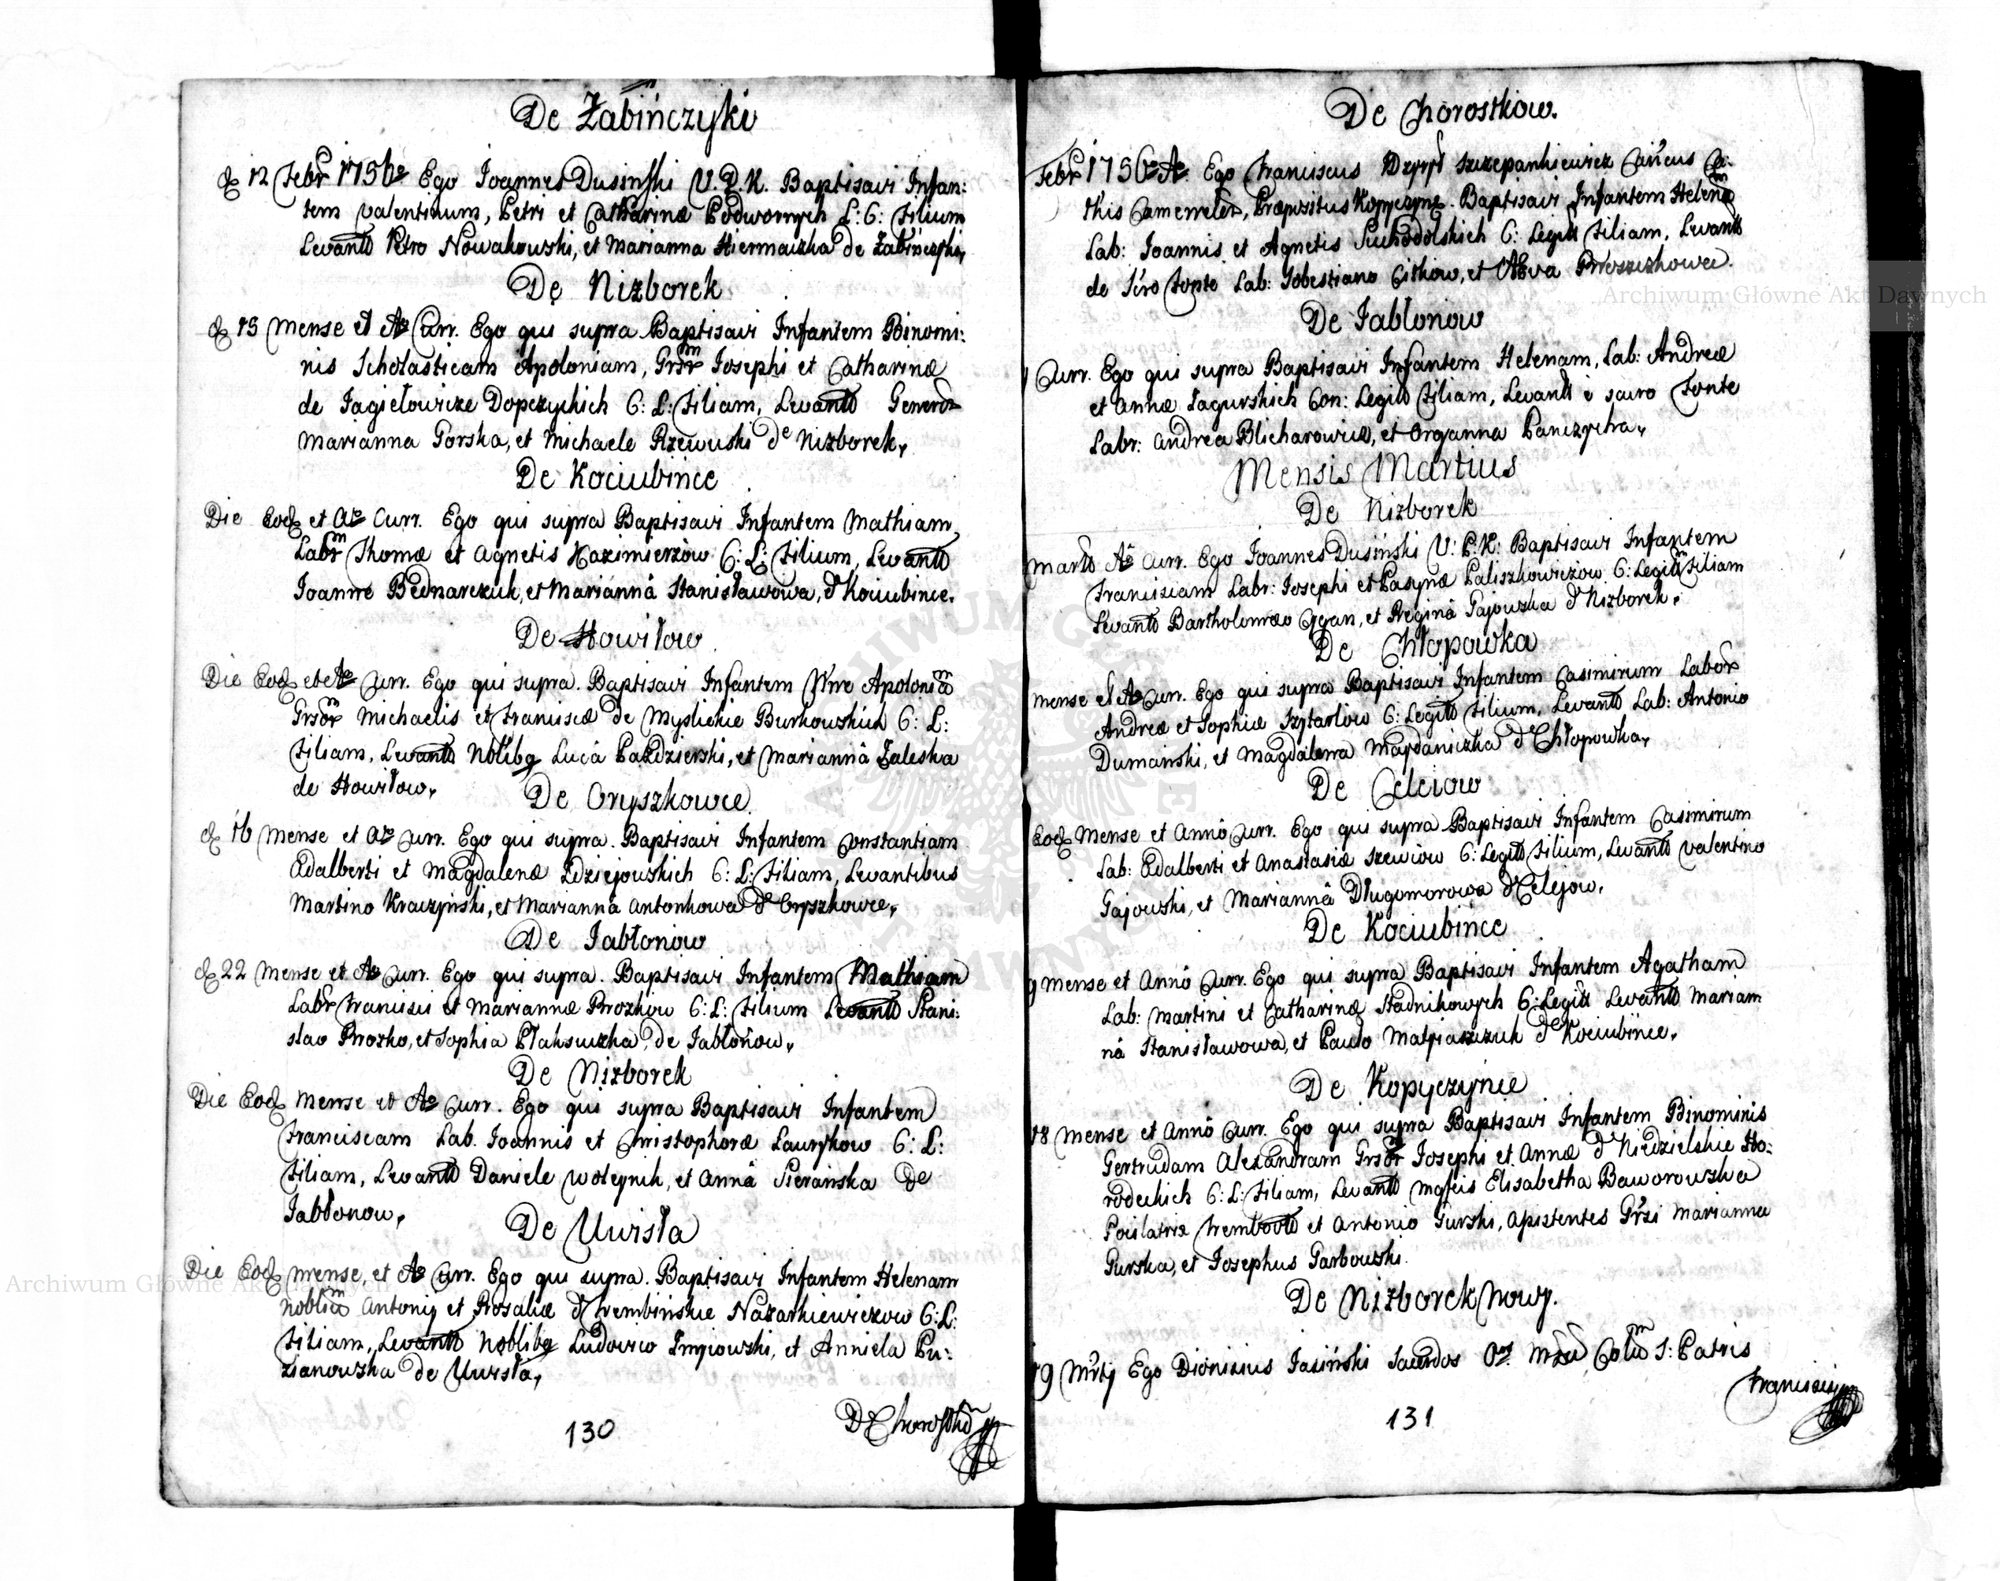 De Żabińczyki
D 12 Febr 1756o Ego Joannes Dusiński V.P.K. Baptisavi Infan:
tem Valentinum, Petri et Catharinæ Podwornych L: C: Filium
Levantb Petro Nowakowski, et Marianna Hiermaczka de Żabińczyki,
De Nizborek
D 15 Mense et Ao Curr. Ego qui supra Baptisavi Infantem Binomi:
nis Scholasticam Apoloniam, Grsor Josephi et Catharinæ
de Jagiełowicze Dopczyckich C: L: Filiam, Levantb Generos
Marianna Gorska, et Michaele Rzewuski de Nizborek,
De Kociubińce
Die Eod et Ao Curr. Ego qui supra Baptisavi Infantem Mathiam,
Labr Thomæ et Agnetis Kazimierzow C: L: Filium, Levantb
Joanne Bednarczuk, et Marianna Stanisławowa, d Kociubińce.
De Howiłow
Die Eod et Ao Curr. Ego qui supra. Baptisavi Infantem Apolonia
Grsor Michaelis et Franciscæ de Myslickie Burkowskich C: L:
Filiam, Levantb Noblibq Lucâ Pazdzierski, et Mariannâ Zaleska
de Howiłow,
De Oryszkowce
D 16 Mense et Ao Curr. Ego qui supra. Baptisavi Infantem Constantiam
Adalberti et Magdalenæ Zdziejowskich C: L: Filiam, Levantibus
Martino Kraczyński, et Marianna Antonkowa de Oryszkowce,
De Jabłonow
D 22 Mense et Ao Curr. Ego qui supra. Baptisavi Infantem Mathiam
Labr Francisci et Mariannæ Prozkow C: L: Filium Levantb Stani:
slao Prozko, et Sophia Płaksuczka, de Jabłonow,
De Nizborek
Die Eod Mense et Ao Curr. Ego qui supra Baptisavi Infantem
Franciscam Lab. Joannis et Christophoræ Laurykow C: L:
Filiam, Levantb Daniele Wołeynik, et Annâ Sieranska De
Jabłonow,
De Uwisła
Die Eod Mense, et Ao Curr. Ego qui supra. Baptisavi Infantem Helenam
Antonij et Rosaliæ d Trembińskie Nazarkiewiczow C: L:
Filiam, Levantb Noblibq Ludovico Smiowski, et Anniela Pu:
zianowska de Uwisła,
130
D Chorostkow
De Chorostkow.
Febr 1756o Ao. Ego Franciscus Szczepankiewicz Cancus Ca:
this Cameneten, Præpositus Kopyczync. Baptisavi Infantem Helena
Lab: Joannis et Agnetis Suchodolskich C: Legitt Filiam, Levantb
de Sacro Fonte Lab: Sobestiano Citkow, et Ewa
De Jabłonow
Curr. Ego qui supra Baptisavi Infantem Helenam, Lab: Andreæ
et Annæ Jagurskich Con: Legitb Filiam, Levantb è sacro Fonte
Labr: Andrea Blicharowicz, et Organna Panczycha,
Mensis Martius
De Nizborek
Marto Ao Curr. Ego Joannes Dusiński V: P: K: Baptisavi Infantem
Franciscam Labr: Josephi et Pasynæ Paliszkowiczow C: Legitt Filiam
Levantb Bartholomæo Cygan, et Reginâ Gajowska d Nizborek,
De Chłopowka
Mense et Ao Curr. Ego qui supra Baptisavi Infantem Casimirum Labor
Andreæ et Sophiæ Szytarlow C: Legitb Filium, Levantb Lab: Antonio
Dumański, et Magdalena Magdaniczka d Chłopowka,
De Celeiow
Eod Mense et Annô Curr. Ego qui supra Baptisavi Infantem Casimirum
Lab: Adalberti et Anastasiæ Szewcow C: Legitb Filium, Levantb Valentino
Gajowski, et Mariannâ Długomorowa d Celejow,
De Kociubińce
9 Mense et Annô Curr. Ego qui supra Baptisavi Infantem Agatham
Lab: Martini et Catharinæ Stadnikowych C: Legitt Levantb Marian
nâ Stanisławowa, et Paulo Matyiaszczuk de Kociubińce,
De Kopyczynie
18 Mense et Annô Curr. Ego qui supra Baptisavi Infantem Binominis
Gertrudam Alexandram Grsor Josephi et Annæ d Niedzielskie Ho:
rodeckich C: L: Filiam, Levantb Mgfcis Elisabetha Baworowska
Pocilatrix Trembovlo et Antonio Gurski, Apistentes Grsi Marianna
Gurska, et Josephus Garbowski.
De Nizborek Nowy.
19 Mrtij Ego Dionisius Jasiński Sacerdos S: Patris
Francisci
131
Archiwum Główne Akt Dawnych
Archiwum Główne Akt Dawnych
ARCHIWUM GŁÓWNE AKT DAWNYCH